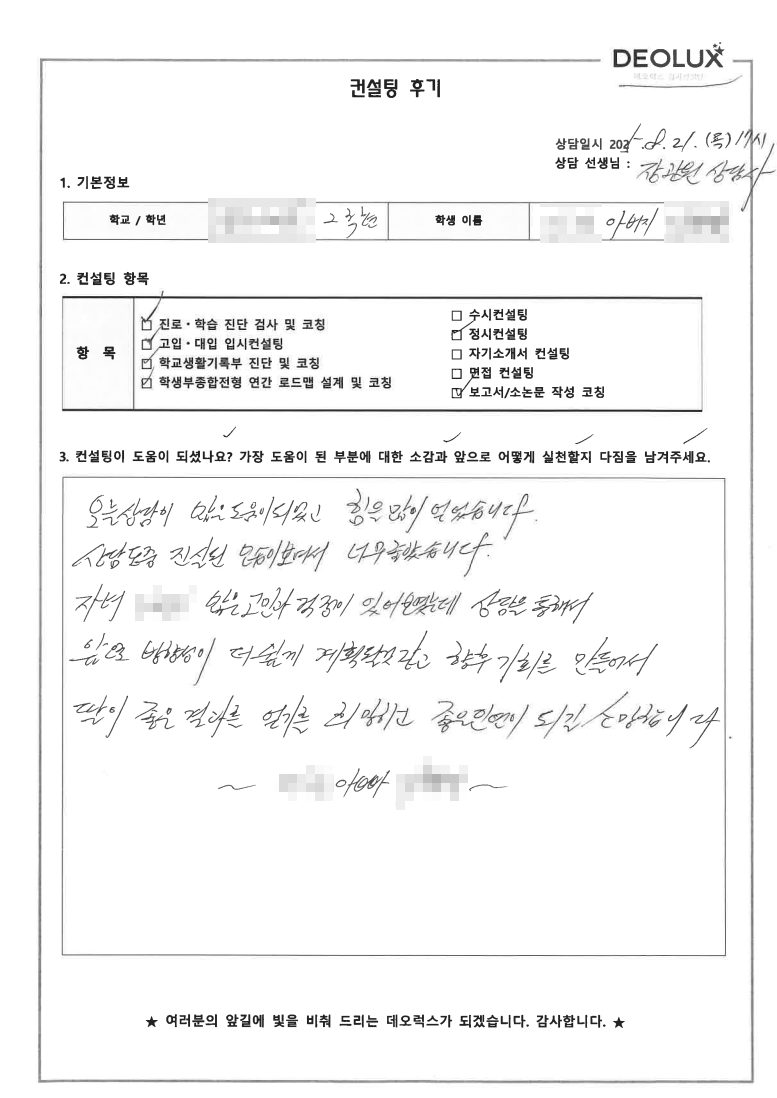 DEOLUX
데오럭스 입시컨설팅
컨설팅 후기
상담일시 2025. 8. 21. (목) 17시
상담 선생님 : 장관원 상담사
1. 기본정보
학교 / 학년 2학년 학생 이름 아버지
2. 컨설팅 항목
항 목
진로·학습 진단 검사 및 코칭
고입·대입 입시컨설팅
학교생활기록부 진단 및 코칭
학생부종합전형 연간 로드맵 설계 및 코칭
수시컨설팅
정시컨설팅
자기소개서 컨설팅
면접 컨설팅
보고서/소논문 작성 코칭
3. 컨설팅이 도움이 되셨나요? 가장 도움이 된 부분에 대한 소감과 앞으로 어떻게 실천할지 다짐을 남겨주세요.
오늘 상담이 많은 도움이 되었고 힘을 많이 얻었습니다.
상담 도중 진실된 모습이 보여서 너무 좋았습니다.
자녀 많은 고민과 걱정이 있어 보였는데 상담을 통해서
앞으로 방향성이 더 쉽게 계획될것 같고 향후 기회를 만들어서
딸이 좋은 결과를 얻기를 희망하고 좋은 인연이 되길 소망합니다.
~ 아빠 ~
★ 여러분의 앞길에 빛을 비춰 드리는 데오럭스가 되겠습니다. 감사합니다. ★